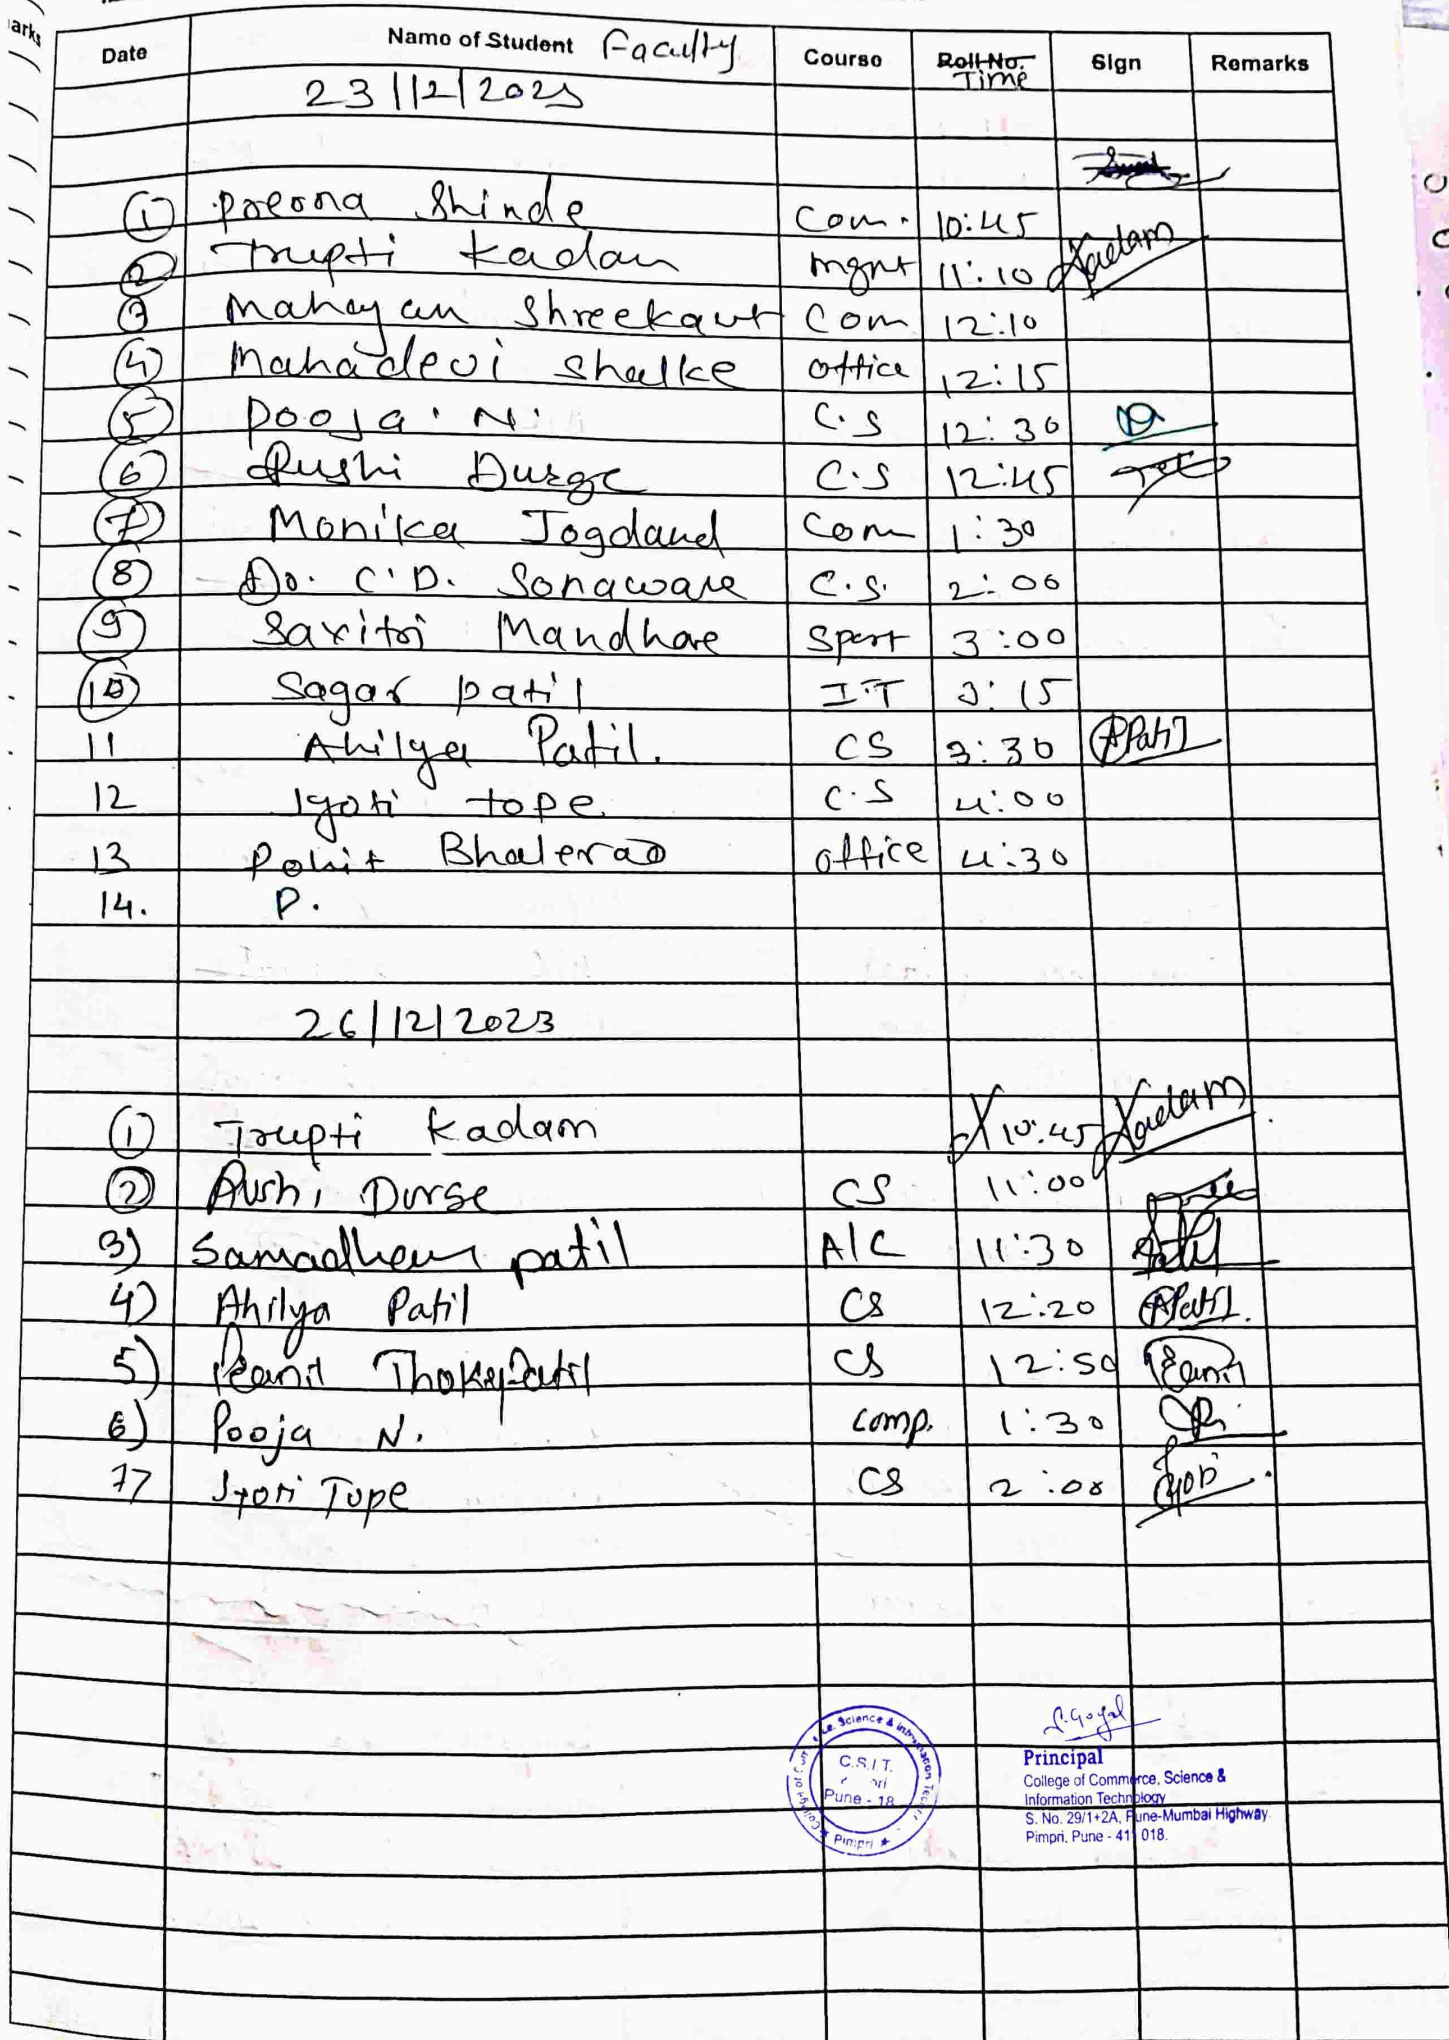 arks
Date Name of Student Faculty Course Roll No. Time Sign Remarks
23/12/2023
1 Prerna Shinde Com. 10:45
2 Trupti Kadam mgnt 11:10 Kadam
3 Mahayan Shreekant Com 12:10
4 Mahadevi Shelke office 12:15
5 Pooja . N. C.S 12:30
6 Rushi Durge C.S 12:45
7 Monika Jogdand Com 1:30
8 Dr. C.D. Sonaware C.S. 2:00
9 Savitri Mandhare Sport 3:00
10 Sagar patil I.T 3:15
11 Ahilya Patil. CS 3:30 APatil
12 Jyoti tope C.S 4:00
13 Rohit Bhalerao office 4:30
14. P.
26/12/2023
1 Trupti Kadam 10:45 Kadam
2 Rushi Durge CS 11:00
3) Samadhan patil A/C 11:30
4) Ahilya Patil CS 12:20 APatil.
5) Thokepatil CS 12:50
6) Pooja N. comp. 1:30
7) Jyoti Tope CS 2:00
Science & Information
C.S.I.T.
Pune - 18
Pimpri
S.Goyal
Principal
College of Commerce, Science &
Information Technology
S. No. 29/1+2A, Pune-Mumbai Highway.
Pimpri, Pune - 411 018.